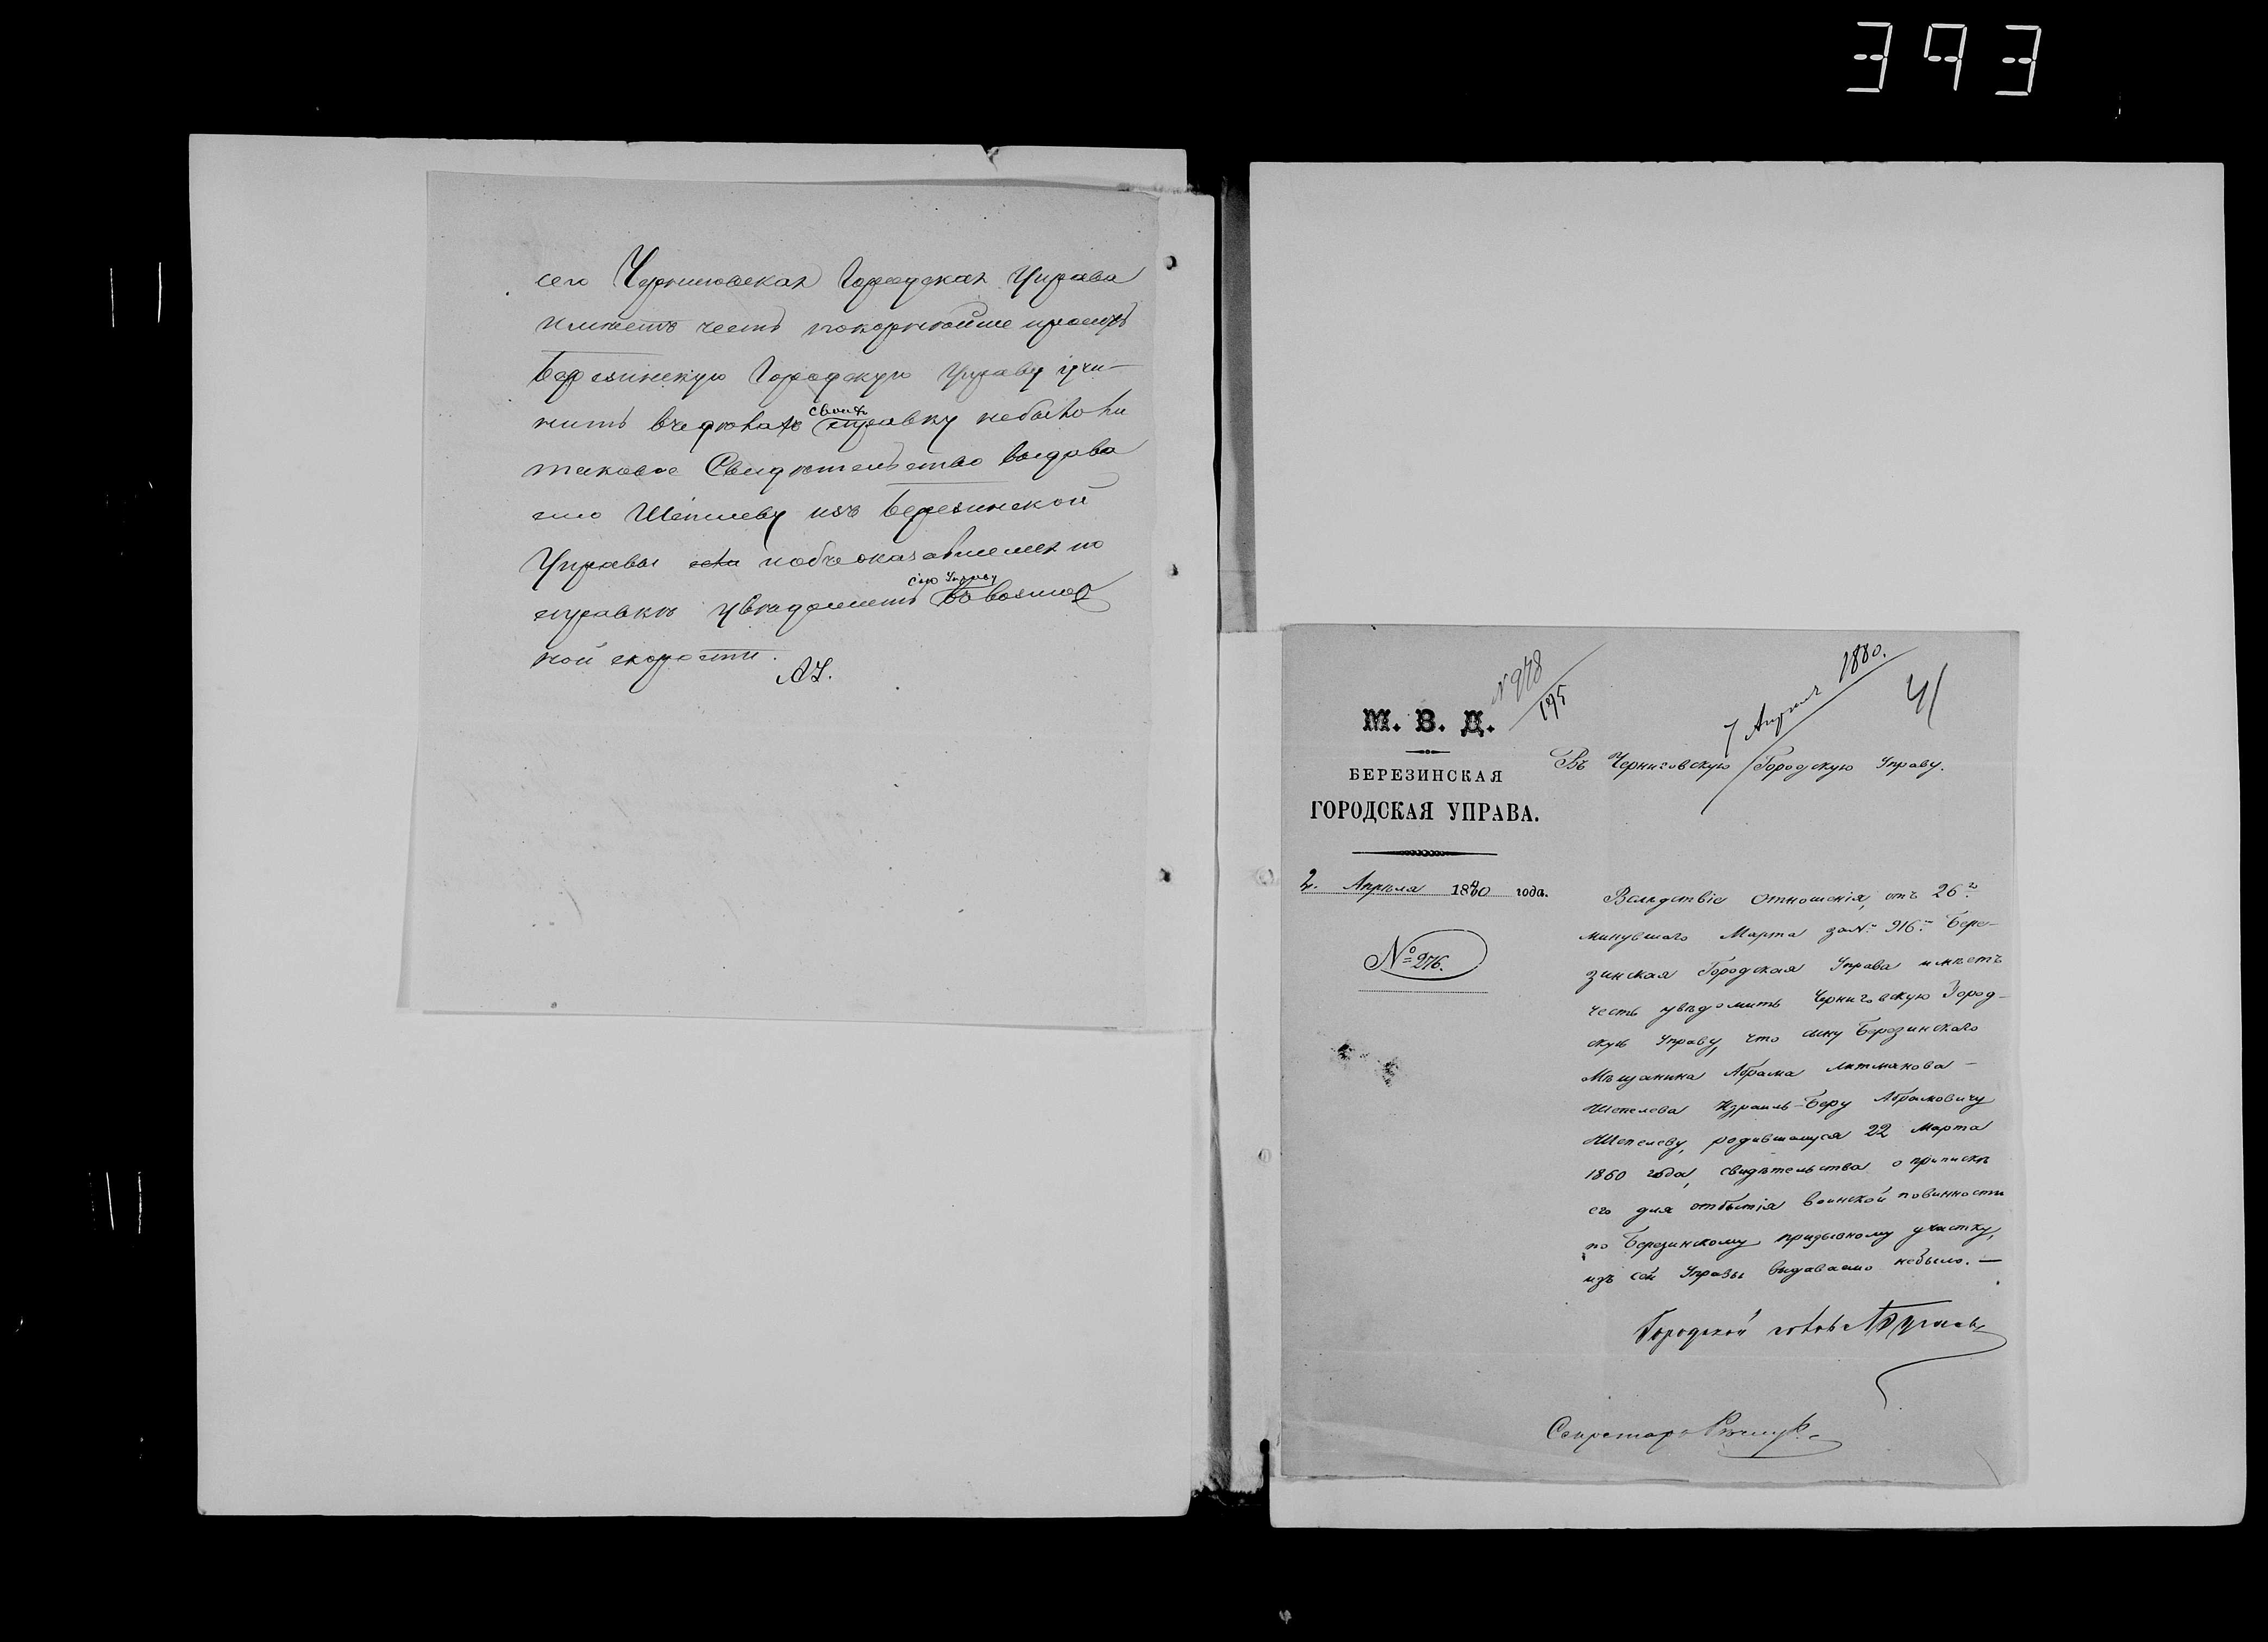 393
сего Черниговская Городская Управа
имѣетъ честь покорнѣйше просить
Березинскую Городскую Управу учи-
нить въ дѣлахъ своихъ справку небыло ли
таковое Свидѣтельство выдава
емо Шепелеву изъ Березинской
Управы и объ оказавшемся по
справкѣ увѣдомить сію Управу въ возмож
ной скорости.
№ 978
195
7 Апреля 1880.
М. В. Д.
БЕРЕЗИНСКАЯ
ГОРОДСКАЯ УПРАВА.
2. Апрѣля 1880 года.
№ 276.
Въ Черниговскую Городскую Управу.
Вслѣдствіе отношенія, отъ 26го
минувшаго Марта за № 916. Бере-
зинская Городская Управа имѣетъ
честь увѣдомить Черниговскую Город-
скую Управу, что сыну Березинскаго
Мѣщанина Абрама Литманова
Шепелева Израиль-Беру Абрамовичу
Шепелеву, родившемуся 22 Марта
1860 года, свидѣтельства о припискѣ
его для отбытія воинской повинности
по Березинскому призывному участку,
изъ сей Управы выдаваемо небыло. —
Городской голова
Секретарь